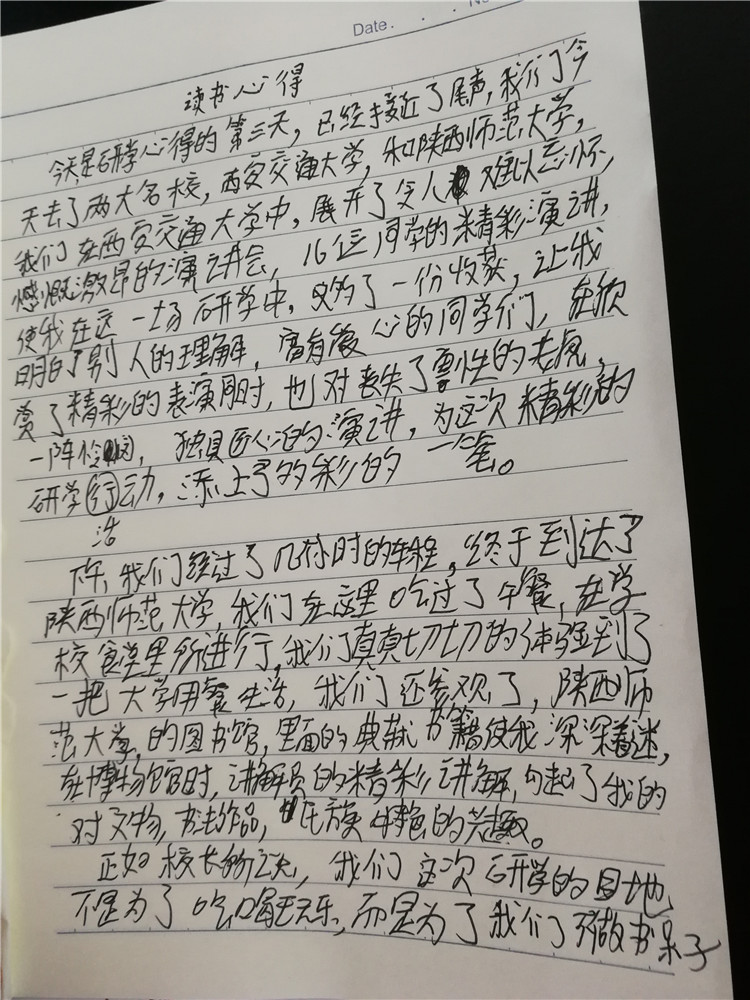 Date. . . No
读书心得
今天是研学心得的第三天，已经接近了尾声，我们今
天去了两大名校，西安交通大学，和陕西师范大学，
我们在西安交通大学中，展开了令人难以忘怀，
慷慨激昂的演讲会，16位同学的精彩演讲，
使我在这一场研学中，又多了一份收获，让我
明白了别人的理解，富有爱心的同学们，在欣
赏了精彩的表演同时，也对丧失了野性的老虎，
一阵怜悯，独具匠心的演讲，为这次精彩的
研学行动，添上了多彩的一笔。
活
下午，我们经过了几小时的车程，终于到达了
陕西师范大学，我们在这里吃过了午餐，在学
校食堂里所进行，我们真真切切的体验到了
一把大学用餐生活，我们还参观了，陕西师
范大学，的图书馆，里面的典藏书籍使我深深着迷，
在博物馆时，讲解员的精彩讲解，勾起了我的
对文物，书法作品，民族特色的兴趣。
正如校长所说，我们这次研学的目地
不是为了吃喝玩乐，而是为了我们不做书呆子